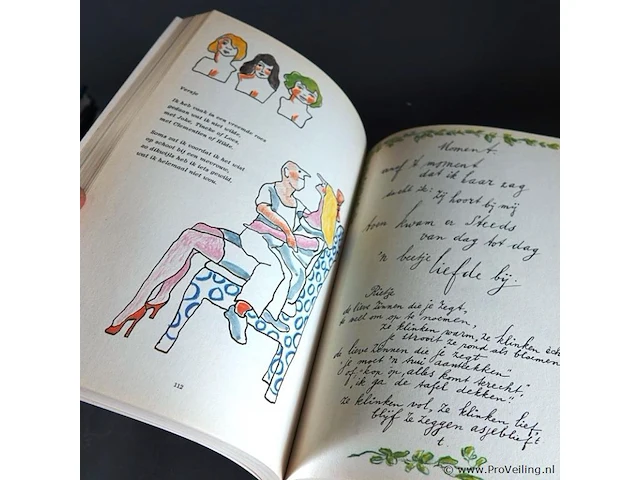 Versje
Ik heb vaak in een vreemde roes
gedaan wat ik niet wilde,
met Joke, Tineke of Loes,
met Clementien of Hilde.
Soms zat ik voordat ik het wist
op schoot bij een mevrouw,
zo dikwijls heb ik iets gewild,
wat ik helemaal niet wou.
112
Moment.
vanaf 't moment
dat ik haar zag
dacht ik: zij hoort bij mij
toen kwam er steeds
van dag tot dag
'n beetje liefde bij.
Rietje
de lieve zinnen die je zegt,
te veel om op te noemen,
ze klinken warm, ze klinken echt
je strooit ze rond als bloemen
de lieve zinnen die je zegt
"je moet 'n trui aantrekken"
of "kop op, alles komt terecht",
"ik ga de tafel dekken"
ze klinken vol, ze klinken lief,
blijf ze zeggen asjeblieft
t.
© www.ProVeiling.nl